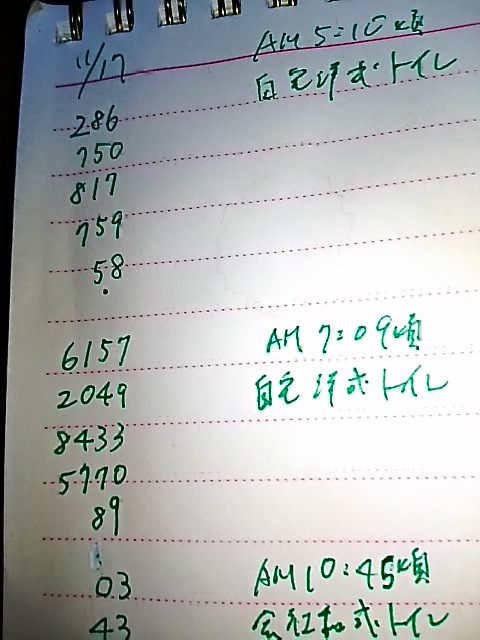 11/17 AM 5:10頃
自宅洋式トイレ
286
750
817
759
58
6157 AM 7:09頃
2049 自宅洋式トイレ
8433
5770
89
03 AM 10:45頃
43 会社和式トイレ